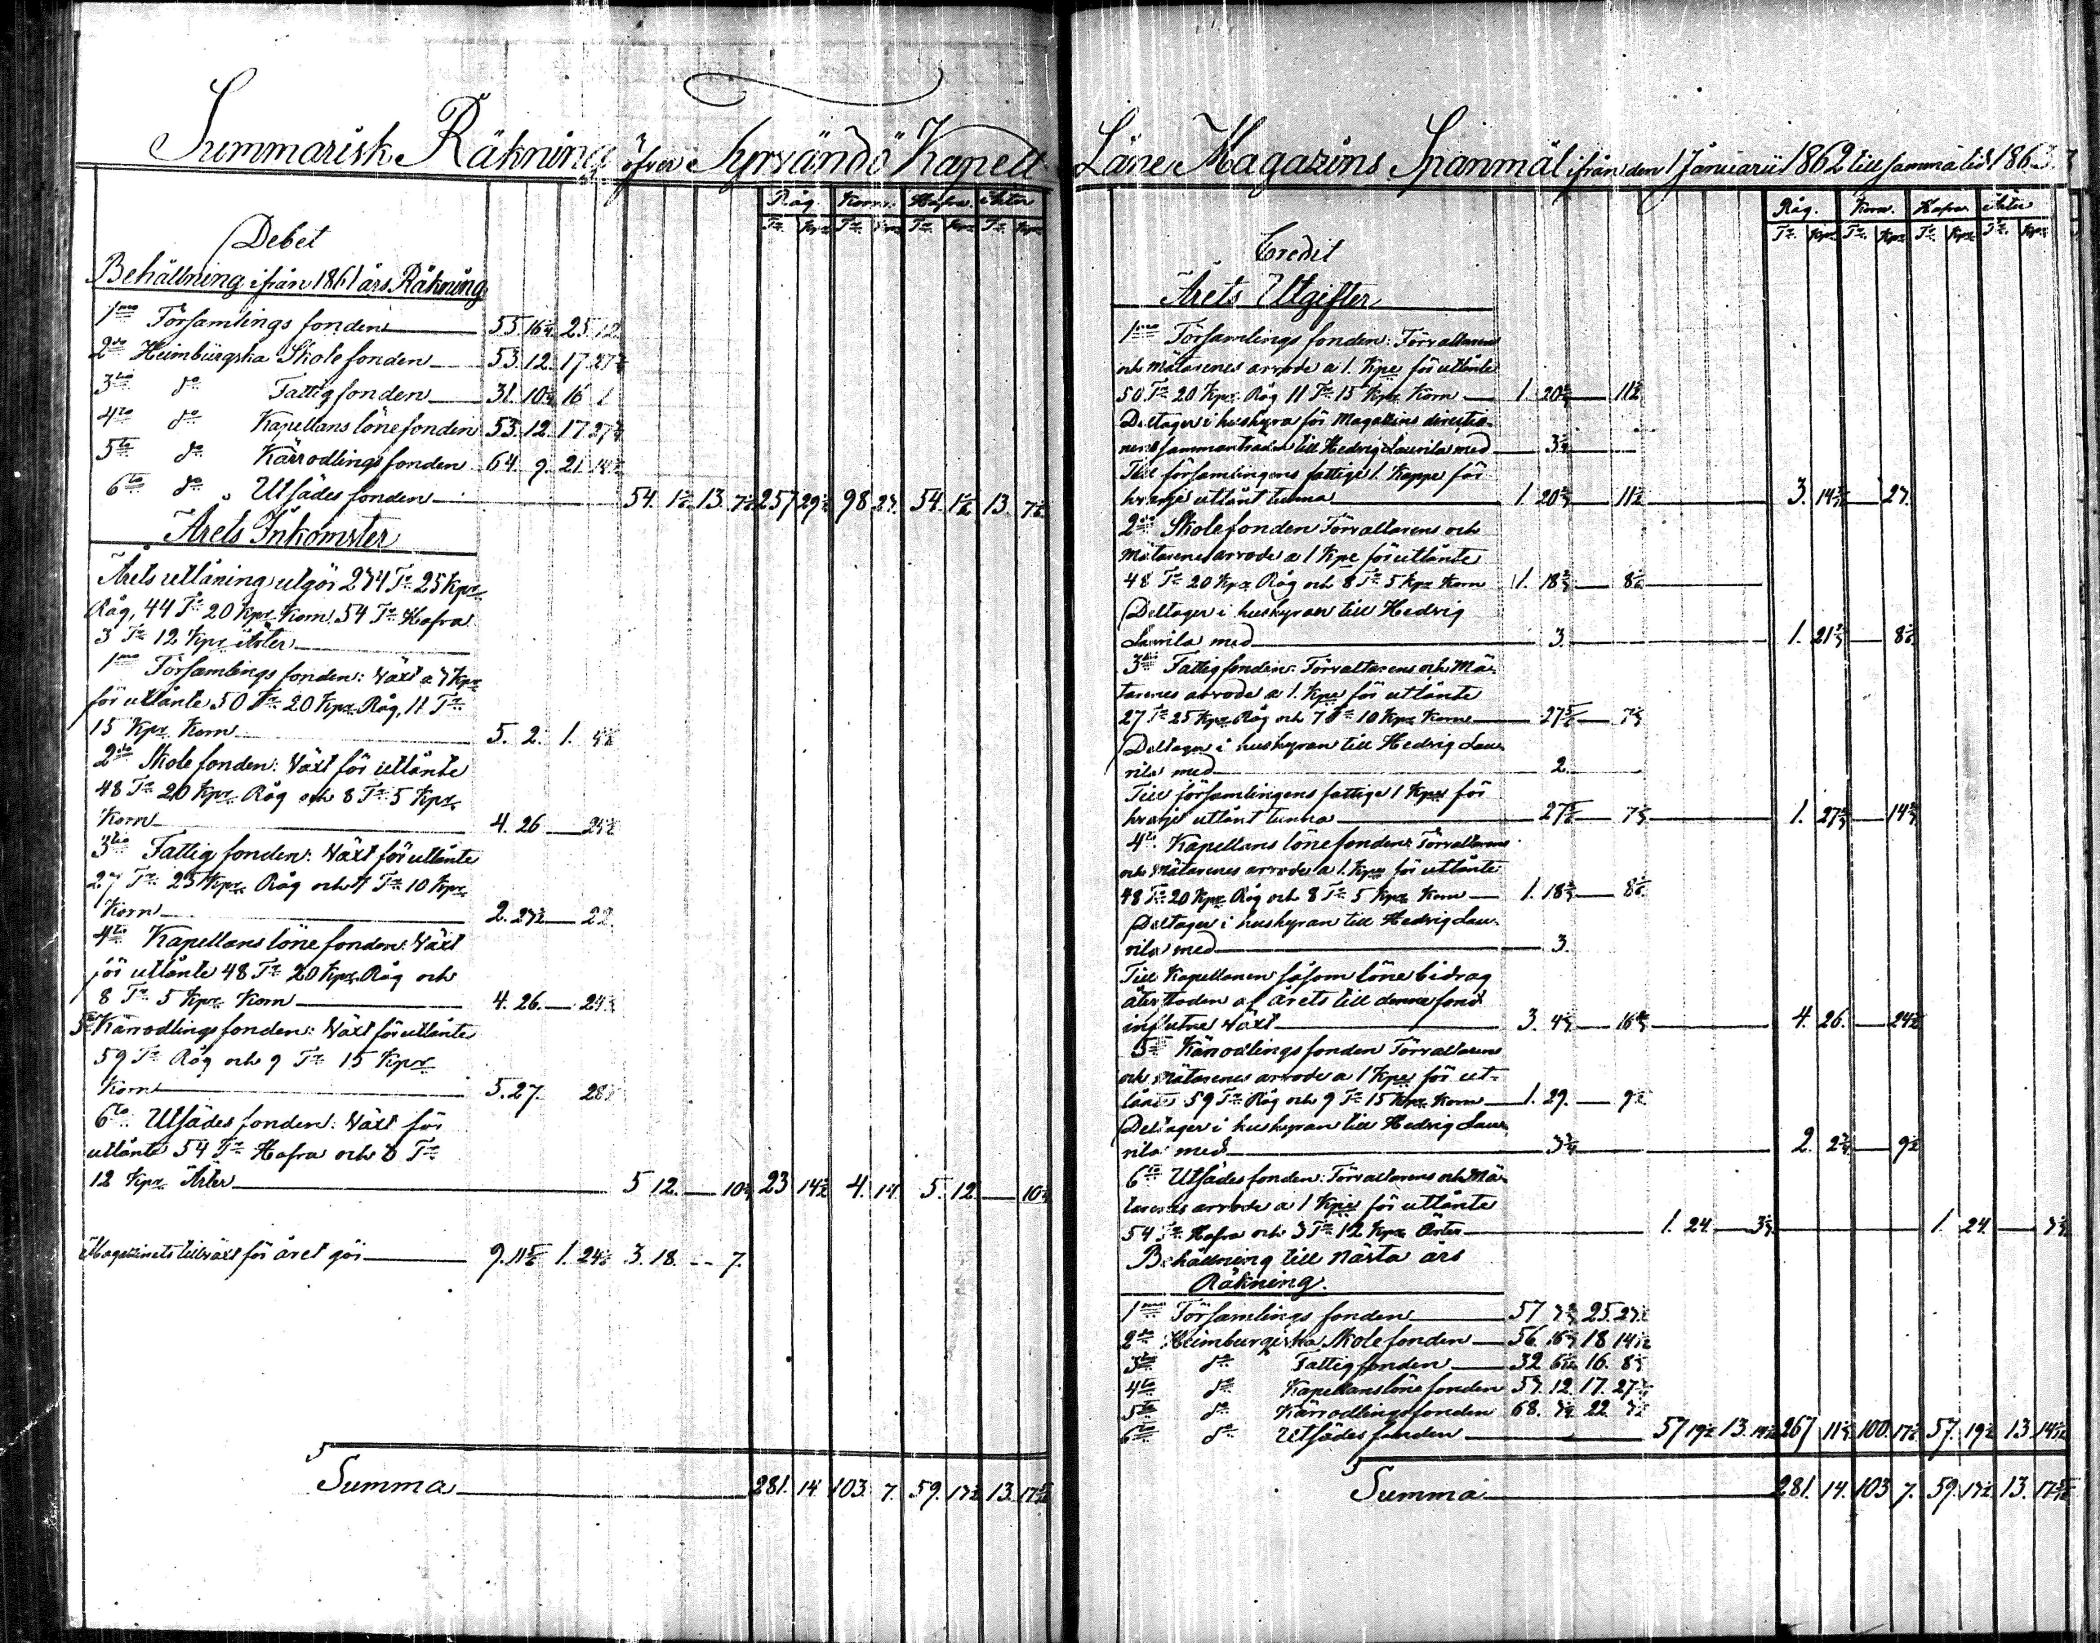 Summarisk Räkning öfver Syrvändö Kapell
Råg. Korn. Hafra. Ärter
Tr. Kpr Tr. Kpr Tr. Kpr Tr. Kpr
Debet
Behållning ifrån 1861 års Räkning
1mo Församlings fonden 55. 25. 12.
2do Heimbürgska Skolefonden 53. 12. 17.
3tio do Fattigfonden 31. 16 1
4to do Kapellans lönefonden 53. 12. 17.
5to do Kärrodlings fonden 64. 9. 21.
6to do Utsädes fonden 54. 13. 257 98 54. 13.
Årets Inkomster
Årets utlåning utgör 234 Tr. 25 Kpr
Råg, 44 Tr. 20 Kpr Korn, 54 Tr. Hafra
3 Tr. 12 Kpr ärter
1mo Församlings fonden: Växt a Kpr
för utlånte 50 Tr. 20 Kpr Råg, 11 Tr.
15 Kpr Korn 5. 2. 1.
2do Skole fonden: Växt för utlånte
48 Tr. 20 Kpr Råg och 8 Tr. 5 Kpr
Korn 4. 26
3tio Fattig fonden: Växt för utlånte
27 Tr. 25 Kpr Råg och 7 Tr. 10 Kpr
Korn 2. 22.
4to Kapellans löne fonden: Växt
för utlånte 48 Tr. 20 Kpr Råg och
8 Tr. 5 Kpr Korn 4. 26.
5to Kärrodlings fonden: Växt för utlånte
59 Tr. Råg och 9 Tr. 15 Kpr
Korn 5. 27.
6to Utsädes fonden: Växt för
utlånte 54 Tr. Hafra och 3 Tr.
12 Kpr Ärter 5 12. 23 4. 14. 5. 12.
Magazinets tillväxt för året gör 9. 1. 3. 18. 7.
Summa 281. 14 103. 7. 59. 13.
Låne Magazins Spanmål ifrån den 1 Januarii 1862 till samma tid 1863.
Råg. Korn. Hafra ärter
Tr. Kpr Tr. Kpr Tr. Kpr Tr. Kpr
Credit
Årets Utgifter
1mo Församlings fonden: Förvaltarens
och mätarenes arvode a 1. Kpe för utlånte
50 Tr. 20 Kpr Råg 11 Tr. 15 Kpr Korn 1. 20½ 11½
Deltager i huskyra för Magazins directio-
nens sammanträden till Hedvig Laurila med
Till församlingens fattige 1. Kappe för
hvarje utlånt tunna 1. 20½ 11½ 3. 27.
2do Skolefonden Förvaltarens och
Mätarenes arvode a 1 Kpe för utlånte
48 Tr. 20 Kpr Råg och 8 Tr. 5 Kpr Korn 1. 18⅔ 8⅙
Deltager i huskyran till Hedvig
Laurila med 3. 1. 21⅔ 8⅙
3tio Fattig fonden: Förvaltarens och Mä-
tarenes arvode a 1. Kpe för utlånte
27 Tr. 25 Kpr Råg och 7 Tr. 10 Kpr Korn 27⅚ 7⅓
Deltager i huskyran till Hedvig Lau-
rila med 2.
Till församlingens fattige 1 Kpe för
hvarje utlånt tunna 27⅚ 7⅓ 1. 14⅔
4to Kapellans löne fonden: Förvaltarens
och Mätarenes arvode a 1. Kpe för utlånte
48 Tr. 20 Kpr Råg och 8 Tr. 5 Kpr Korn 1. 18⅔ 8⅙
Deltager i huskyran till Hedvig Lau-
rila med 3.
Till Kapellanen såsom löne bidrag
återstoden af årets till denna fond
influtne växt 3. 4⅓ 16⅓ 4. 26. 24½
5to Kärrodlings fonden Förvaltarens
och Mätarenes arvode a 1 Kpe för ut-
lånte 59 Tr. Råg och 9 Tr. 15 Kpr Korn 1. 29. 9½
Deltager i huskyran till Hedvig Lau-
rila med 2. 9½
6to Utsädes fonden: Förvaltarens och Mä-
tarenes arvode a 1 Kpe för utlånte
54 Tr. Hafra och 3 Tr. 12 Kpr Ärter 1. 24 1. 24.
Behållning till nästa års
Räkning.
1mo Församlings fonden 57 25.
2do Heimburgiska Skole fonden 56. 18
3tio do Fattig fonden 32 16.
4to do Kapellans löne fonden 12. 17.
5to do Kärrodlings fonden 68. 22.
6to do Utsädes fonden 57 13. 267 100. 57. 13.
Summa 281. 14. 103 7. 59. 13.